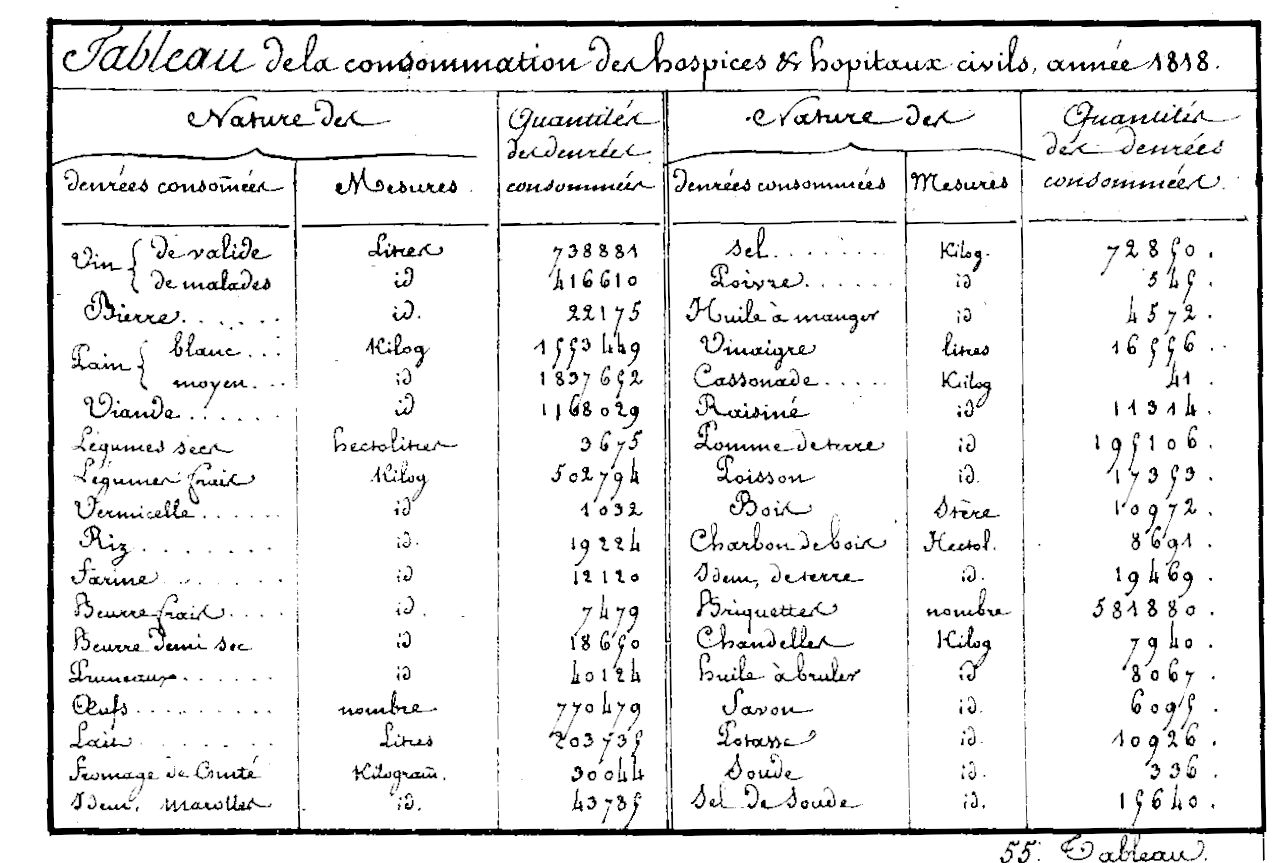 Tableau de la consommation des hospices & hopitaux civils, année 1818.
Nature des Quantités des denrées consommées Nature des Quantités des denrées consommées
denrées consom̃ées Mesures denrées consommées Mesures
Vin { de valide Litres 738881 Sel........ Kilog. 72850.
de malades id 416610 Poivre...... id 545.
Bierre...... id. 22175 Huile à manger id 4572.
Pain { blanc... Kilog 1553449 Vinaigre litres 16556..
moyen... id 1837652 Cassonade..... Kilog 41.
Viande...... id 1168029 Raisiné id 11314.
Légumes secs hectolitres 3675 Pomme de terre id 195106.
Légumes frais Kilog 502794 Poisson id. 17353.
Vermicelle...... id 1032 Bois Stère 10972.
Riz........ id. 19224 Charbon de bois Hectol. 8691.
Farine....... id 12120 Idem, de terre id. 19469.
Beurre frais.... id. 7479 Briquettes nombre 581880.
Beurre demi sec id 18650 Chandelles Kilog 7940.
Pruneaux...... id 40124 huile à bruler id 8067.
Œufs......... nombre 770479 Savon id. 6095.
Lait......... Litres 203735 Potasse id. 10926.
Fromage de Comté Kilogram̃. 30044 Soude id. 336.
Idem, marolles id. 43785 Sel de Soude id. 15640.
55. Tableau.